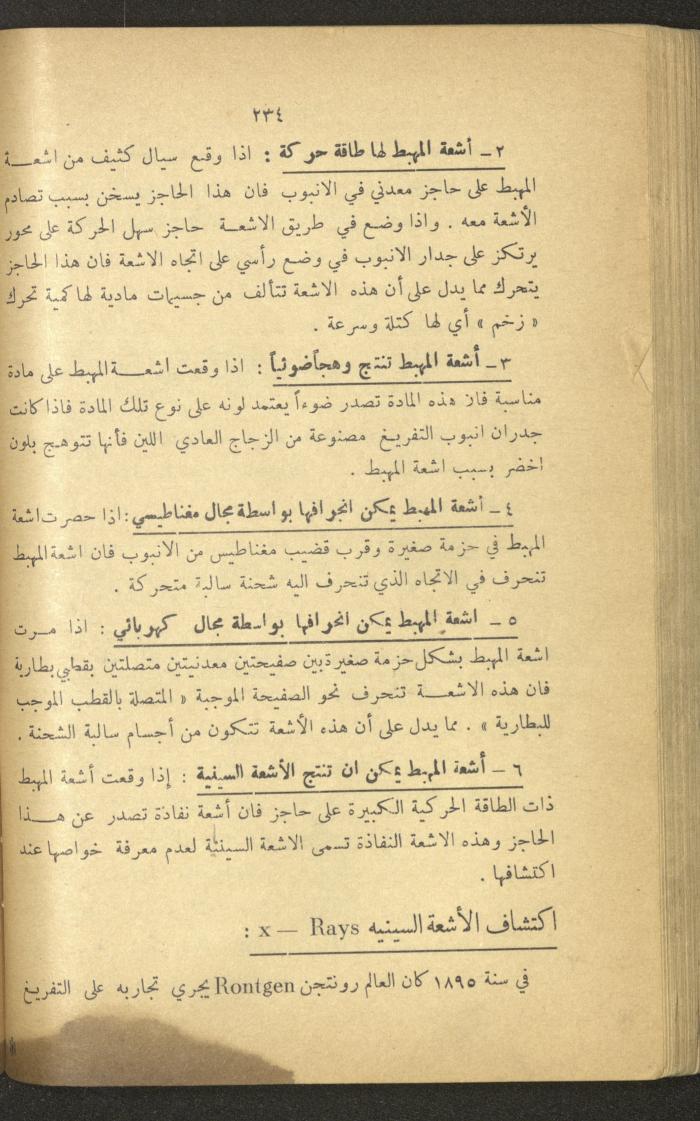 ٢٣٤
٢ ـ أشعة المهبط لها طاقة حركة : اذا وقع سيال كثيف من اشعـــة
المهبط على حاجز معدني في الانبوب فان هذا الحاجز يسخن بسبب تصادم
الأشعة معه . واذا وضع في طريق الاشعـــة حاجز سهل الحركة على محور
يرتكز على جدار الانبوب في وضع رأسي على اتجاه الاشعة فان هذا الحاجز
يتحرك مما يدل على أن هذه الاشعة تتألف من جسيمات مادية لها كمية تحرك
« زخم » أي لها كتلة وسرعة .
٣ ـ أشعة المهبط تنتج وهجاً ضوئياً : اذا وقعت اشعـــة المهبط على مادة
مناسبة فان هذه المادة تصدر ضوءاً يعتمد لونه على نوع تلك المادة فاذا كانت
جدران انبوب التفريغ مصنوعة من الزجاج العادي اللين فأنها تتوهج بلون
اخضر بسبب اشعة المهبط .
٤ ـ أشعة المهبط يمكن انجرافها بواسطة مجال مغناطيسي : اذا حصرت اشعة
المهبط في حزمة صغيرة وقرب قضيب مغناطيس من الانبوب فان اشعة المهبط
تنحرف في الاتجاه الذي تنحرف اليه شحنة سالبة متحركة .
٥ ـ اشعة المهبط يمكن انحرافها بواسطة مجال كهربائي : اذا مــرت
اشعة المهبط بشكل حزمة صغيرة بين صفيحتين معدنيتين متصلتين بقطبي بطارية
فان هذه الاشعـــة تنحرف نحو الصفيحة الموجبة « المتصلة بالقطب الموجب
للبطارية » . مما يدل على أن هذه الأشعة تتكون من أجسام سالبة الشحنة .
٦ ـ أشعة المهبط يمكن ان تنتج الأشعة السينية : إذا وقعت أشعة المهبط
ذات الطاقة الحركية الكبيرة على حاجز فان أشعة نفاذة تصدر عن هـــذا
الحاجز وهذه الاشعة النفاذة تسمى الاشعة السينية لعدم معرفة خواصها عند
اكتشافها .
اكتشاف الأشعة السينيه x — Rays :
في سنة ١٨٩٥ كان العالم رونتجن Rontgen يجري تجاربه على التفريغ